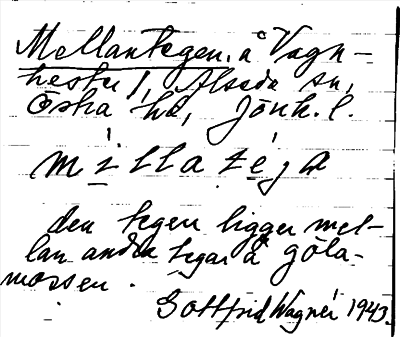 Mellantegen, å Vagn-
hester 1, Alseda sn,
Östra hd, Jönk. l.
millatéja
den tegen ligger mel-
lan andra tegar å göla-
mossen.
Gottfrid Wagnér 1943.